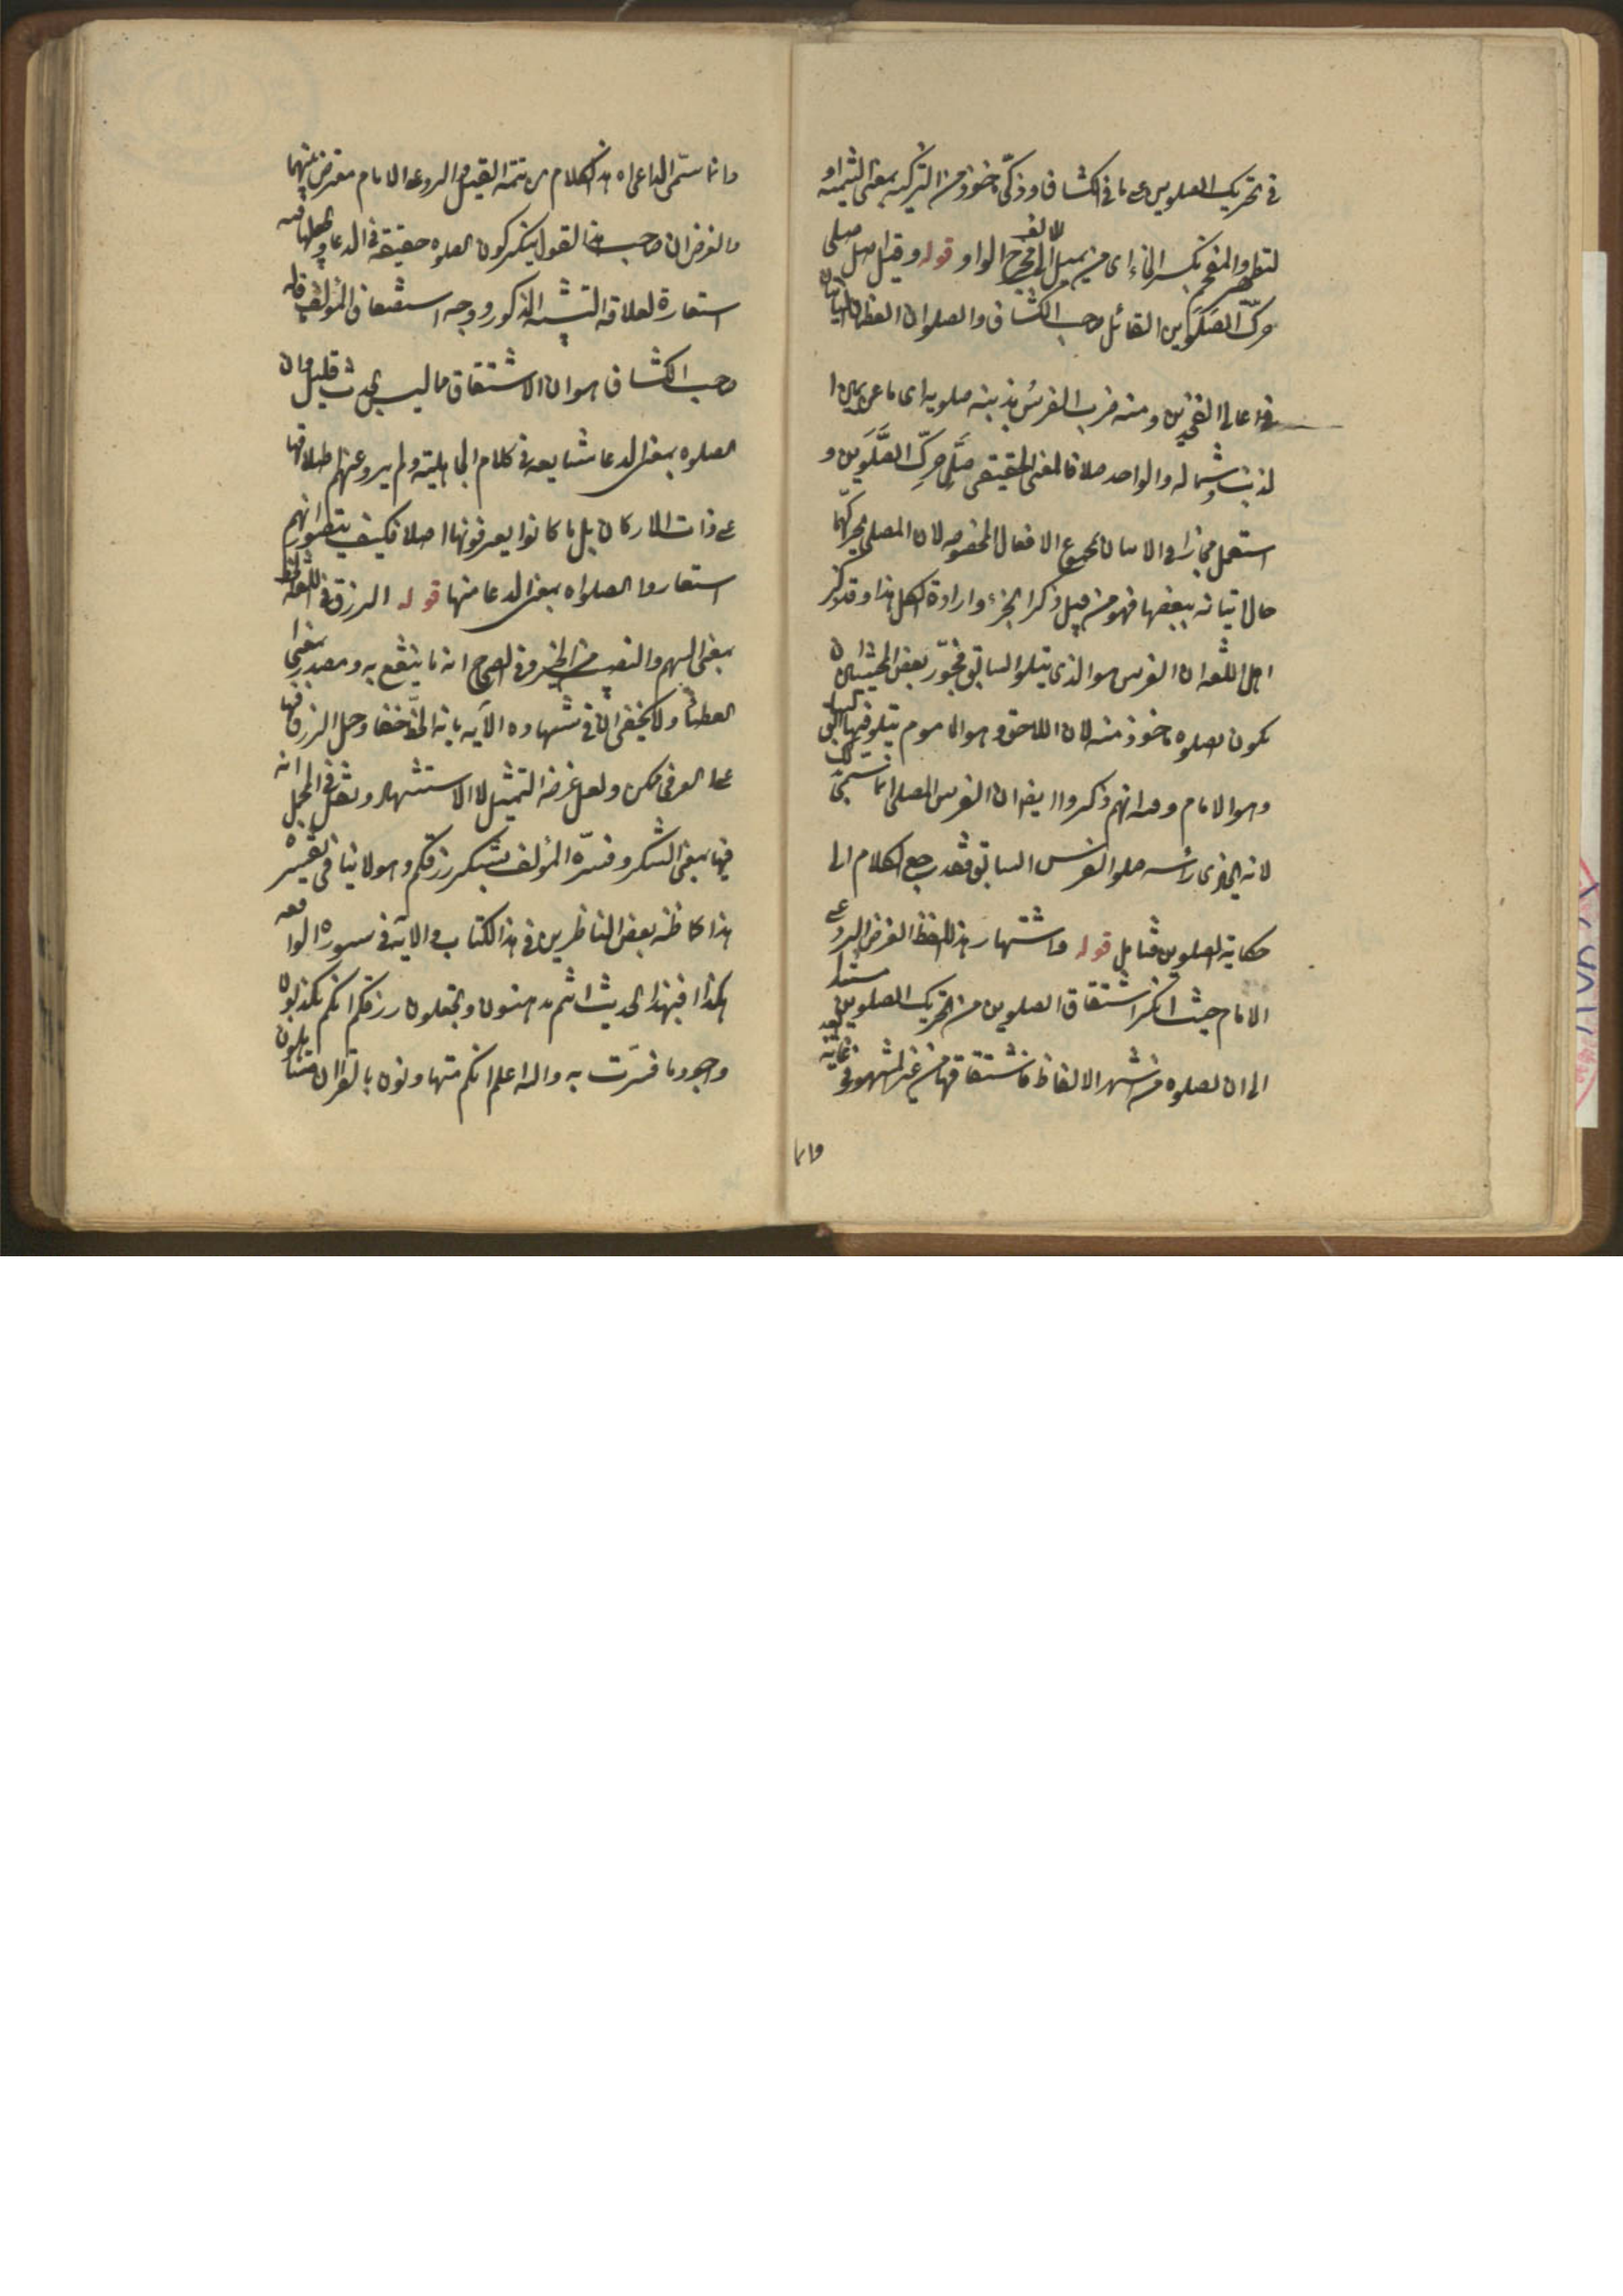 في تحريك الصلوين على ما في الكشاف وزكّى مأخوذ من التزكية بمعنى التنمية او
التطهير والمفخم بكسر الخاء اى من يميل الالف الى مخرج الواو قوله وقيل اصل صلى
حرّك الصَلَوين القائل صاحب الكشاف والصلوان العظمان الناتيان
في اعالى الفخذين ومنه ضرب الفرس بذنبه صلويه اى ما عن يمين ا
لذنب وشماله والواحد صلا فالمعنى الحقيقى صلّى حرّك الصَّلَوَين و
استعمل مجازا في الاتيان بمجموع الافعال المخصوصه لان المصلى يحركهما
حال اتيانه ببعضها فهو من قبيل ذكر الجزء وارادة الكل هذا وقد ذكر
اهل اللغه ان الفرس هو الذى يتلو السابق فجوّز بعض المحشين ان
يكون الصلوه مأخوذ منه لان اللاحق وهو المأموم يتلو فيها السابق
وهو الامام وفيه انهم ذكروا ايضا ان الفرس المصلى انما سمى بذلك
لانه يحاذى رأسه صلو الفرس السابق فقد رجع الكلام الى
حكاية الصلوين فتامل قوله واشتهار هذا اللفظ الغرض الرد على
الامام حيث انكر اشتقاق الصلوين من تحريك الصلوين مستندا
الى ان الصلوه من اشهر الالفاظ فاشتقاقها من غير المشهور في غاية البعد
وانما
وانما سمّى الداعى اه هذا الكلام من تتمة القيل والرد على الامام معترض بينهما
والغرض ان صاحب هذا القول ينكر كون الصلوه حقيقة في الدعا ويجعلها فيه
استعارة لعلاقه التشبيه المذكور ووجه استضعاف المؤلف قول
صاحب الكشاف هو ان الاشتقاق مما ليس بحدث قليل وان
الصلوه بمعنى الدعا شايعه في كلام الجاهلية ولم يرو عنهم اطلاقها
على ذات الاركان بل ما كانوا يعرفونها اصلا فكيف يتصور انهم
استعاروا الصلواه بمعنى الدعا منها قوله الرزق في اللغه الحظ
بمعنى السهم والنصيب من الخير وفي الصحاح انه ما ينتفع به ومصدر بمعنى ا
لعطاء ولا يخفى ان في شهاده الآيه بانه الحظّ خفا وحمل الرزق فيها
على العرفى ممكن ولعل غرضه التمثيل لا الاستشهاد ونقل في المجمل انه
فيها بمعنى الشكر وفسّره المؤلف بشكر رزقكم وهو لا ينافى تفسيره
هذا كما ظنه بعض الناظرين في هذا الكتاب والايه في سوره الواقعه
هكذا افبهذا الحديث انتم مدهنون وتجعلون رزقكم انكم تكذبون
وجود ما فسّرت به والله اعلم انكم متهاونون بالقران متساهلون